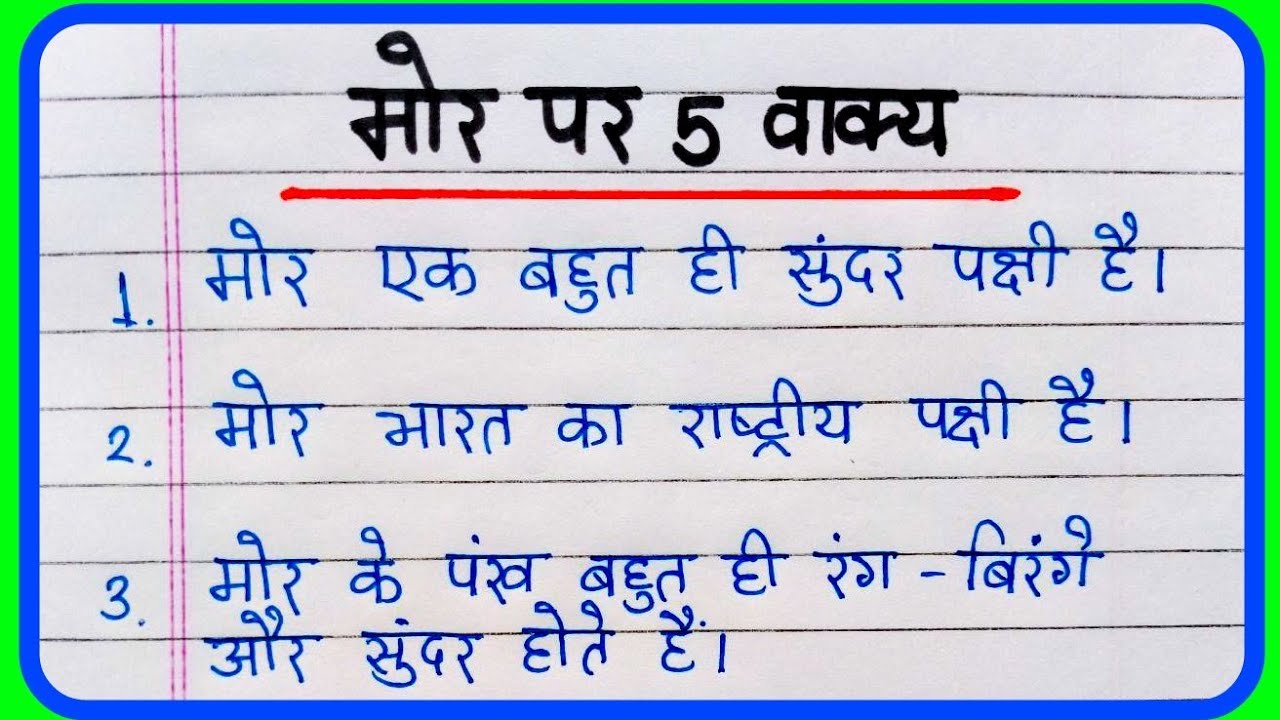 मोर पर 5 वाक्य
1. मोर एक बहुत ही सुंदर पक्षी है।
2. मोर भारत का राष्ट्रीय पक्षी है।
3. मोर के पंख बहुत ही रंग-बिरंगे
और सुंदर होते हैं।